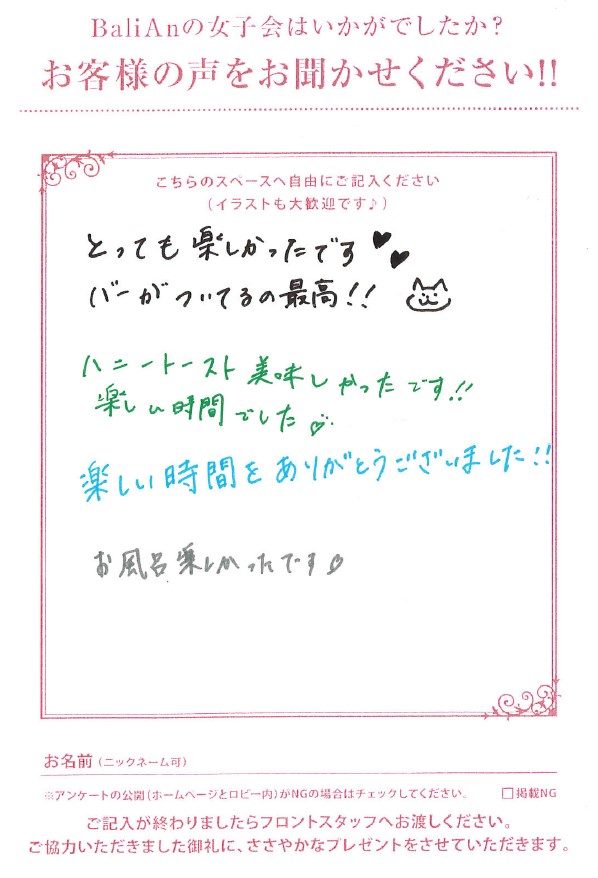 BaliAnの女子会はいかがでしたか?
お客様の声をお聞かせください!!
こちらのスペースへ自由にご記入ください
(イラストも大歓迎です♪)
とっても楽しかったです♥♥
バーがついてるの最高!!
ハニートースト美味しかったです!!
楽しい時間でした♡
楽しい時間をありがとうございました!!
お風呂楽しかったです♡
お名前(ニックネーム可)
※アンケートの公開(ホームページとロビー内)がNGの場合はチェックしてください。 □掲載NG
ご記入が終わりましたらフロントスタッフへお渡しください。
ご協力いただきました御礼に、ささやかなプレゼントをさせていただきます。